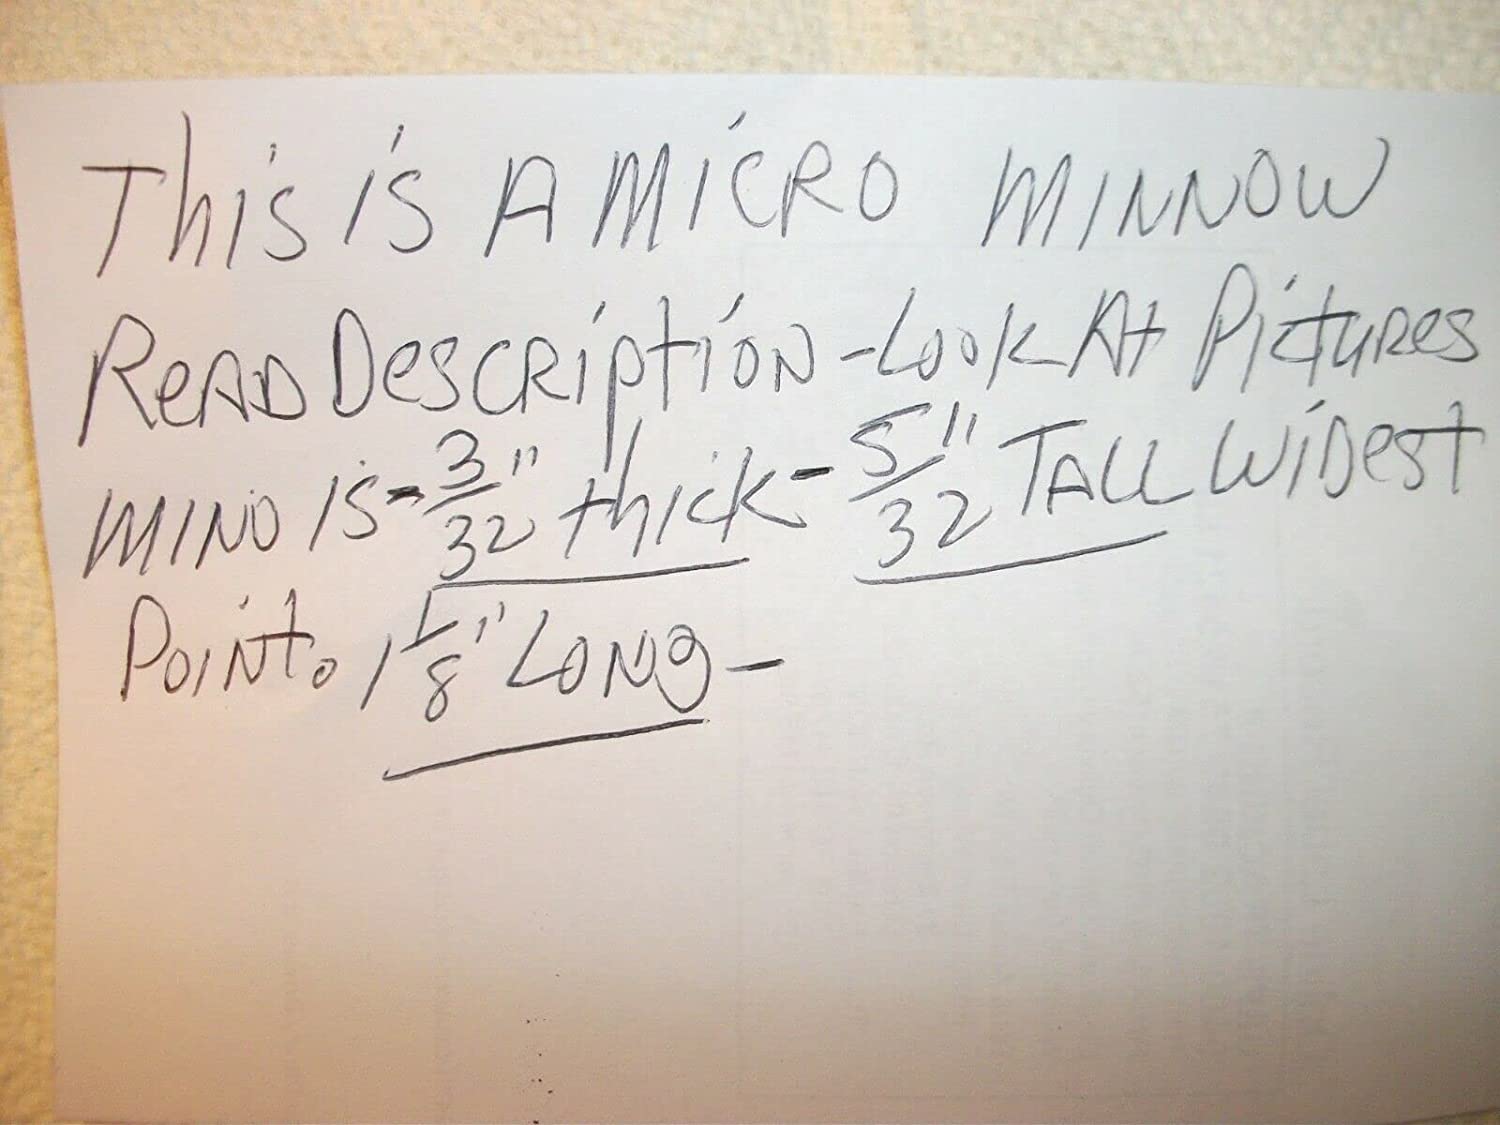 This is A MICRO MINNOW
READ DESCRIPTION - LOOK At PICTURES
MINO IS - 3/32" thick - 5/32" TALL WIDEST
POINT. 1 1/8" LONG -